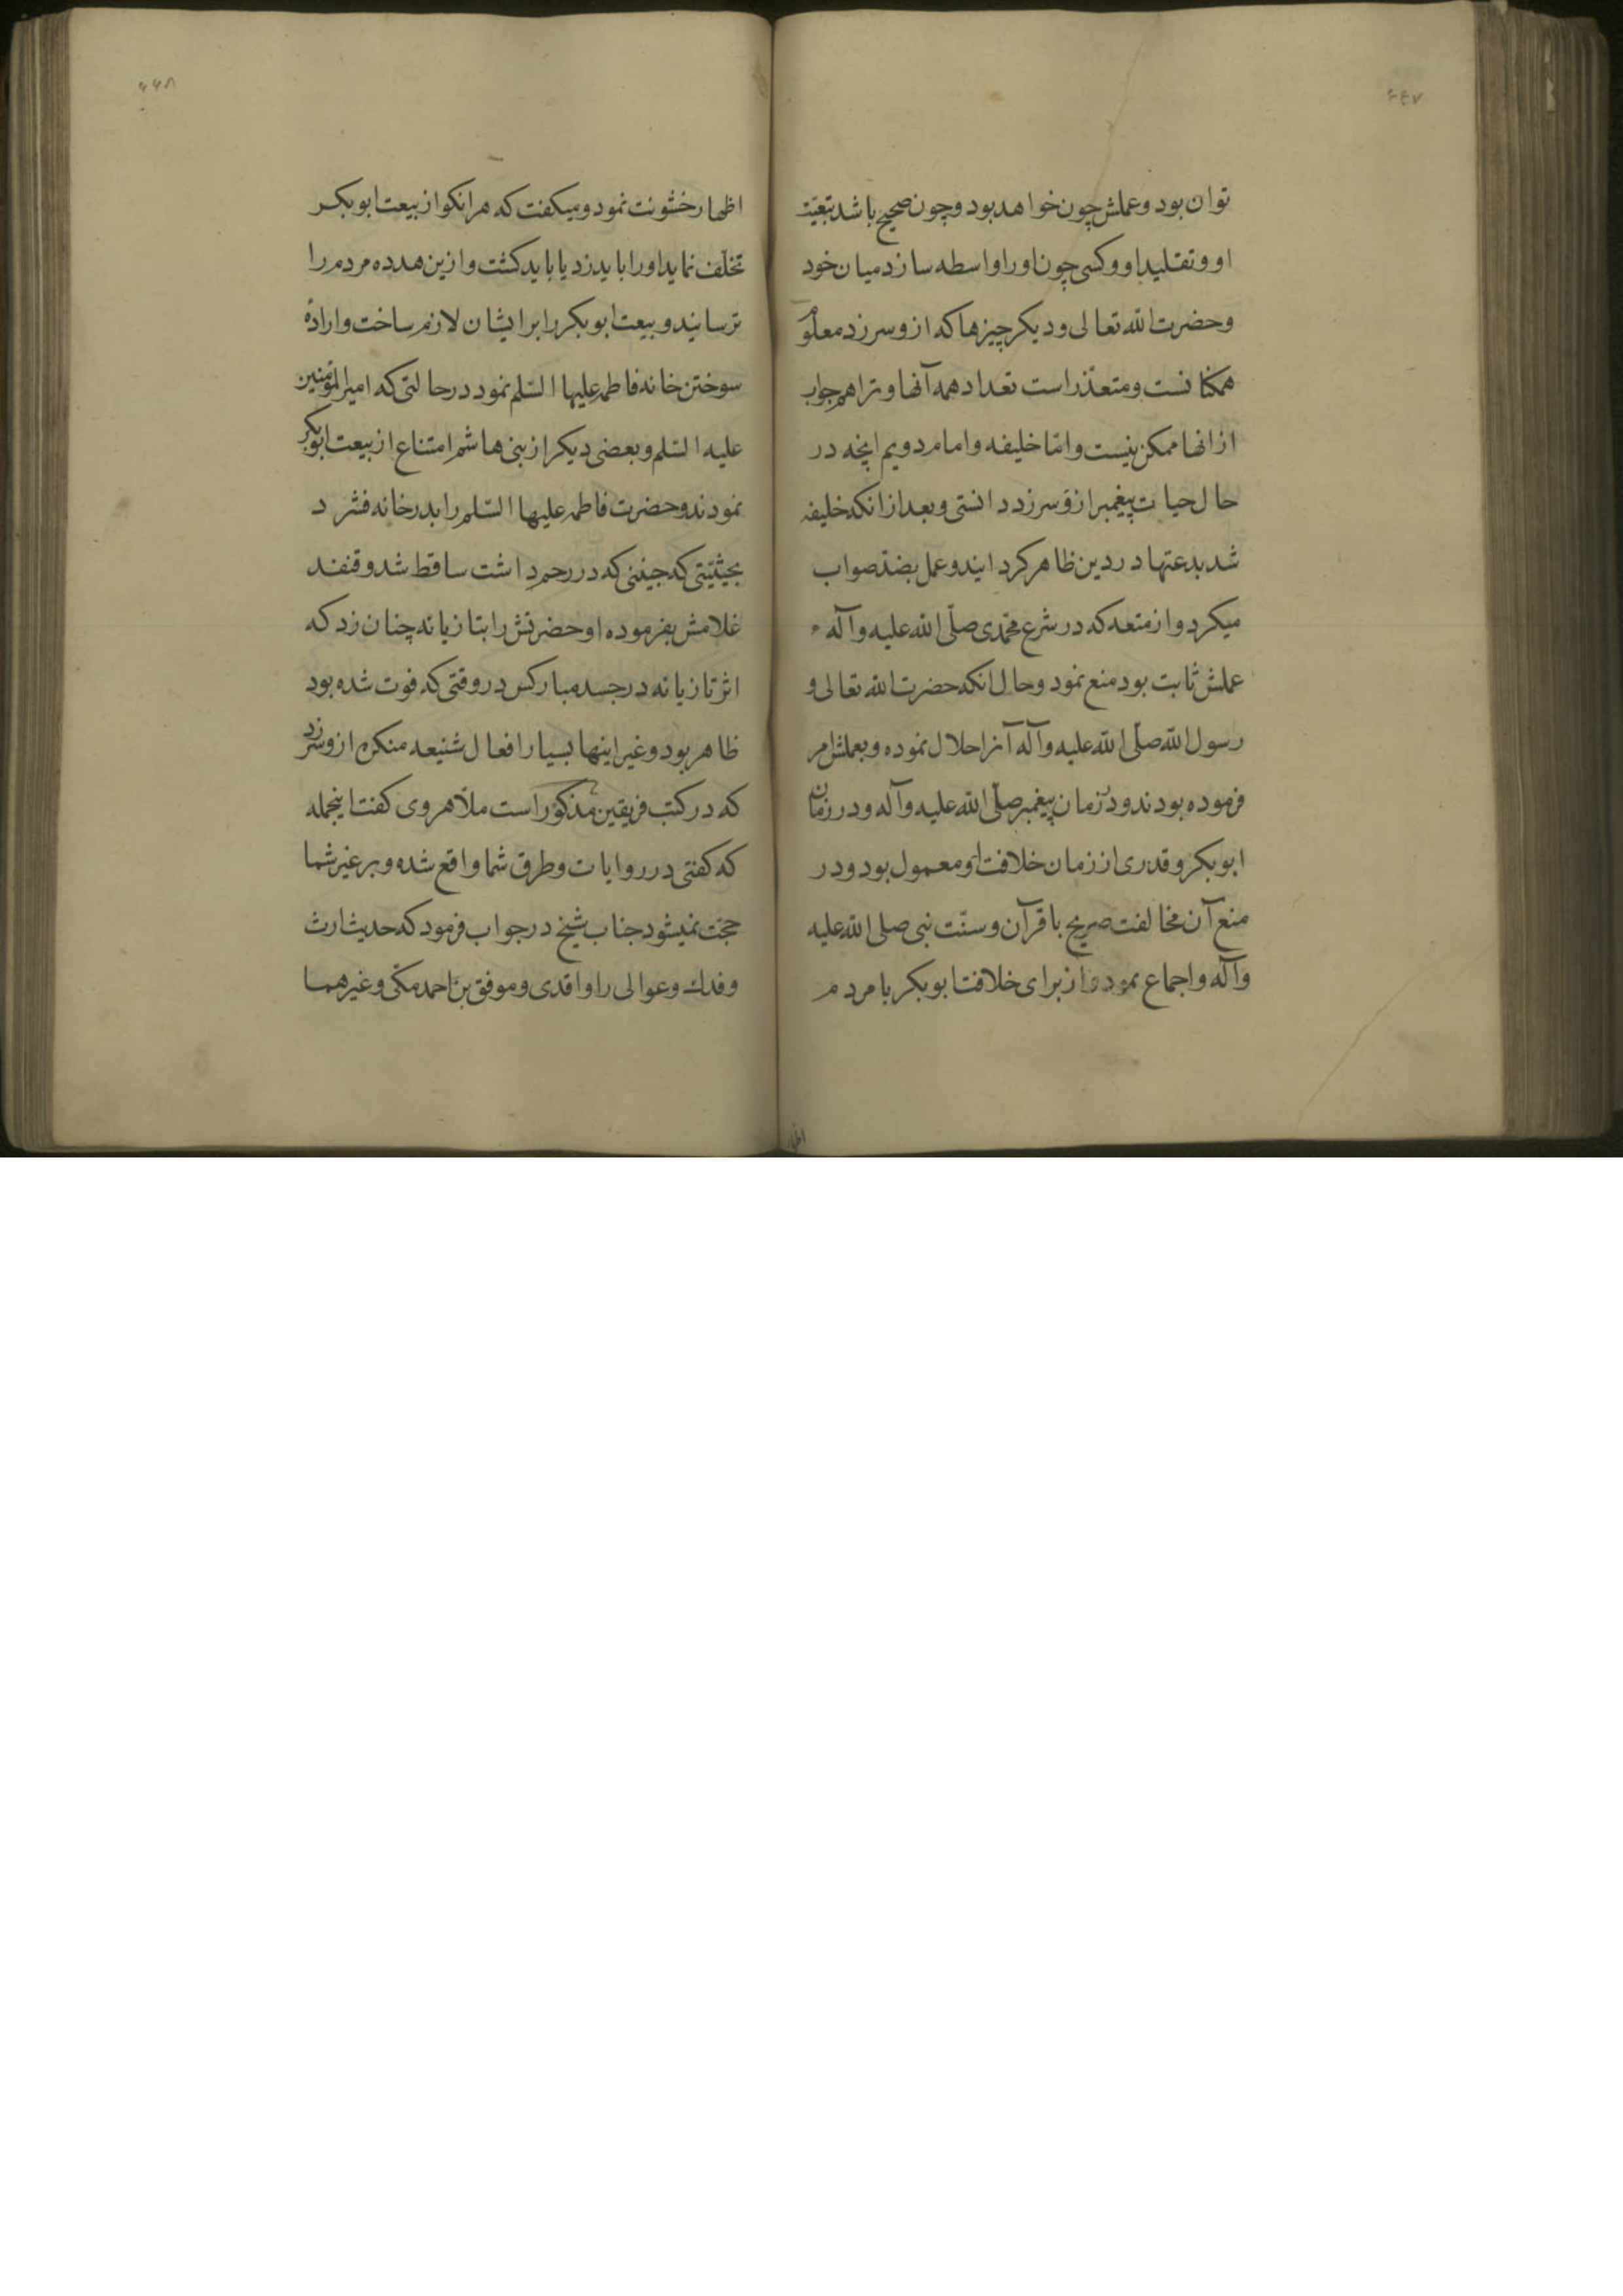 ۴۴۷
توان بود و عملش چون خواهد بود و چون صحیح باشد تبعیّت
او و تقلید او و کسی چون او را واسطه سازد میان خود
و حضرت الله تعالی و دیکر چیزها که ازو سر زد معلوم
همکنانست و متعذّر است تعداد همه آنها و ترا هم جواب
از انها ممکن نیست و امّا خلیفه و امام دویم انچه در
حال حیات پیغمبر ازو سر زد دانستی و بعد از انکه خلیفه
شد بدعتها در دین ظاهر کردایند و عمل بضدّ صواب
میکرد و از متعه که در شرع محمّدی صلّی الله علیه و آله
عملش ثابت بود منع نمود و حال انکه حضرت الله تعالی و
رسول الله صلّی الله علیه و آله آنرا حلال نموده و بعملش امر
فرموده بودند و در زمان پیغمبر صلّی الله علیه و آله و در زمان
ابوبکر و قدری از زمان خلافت او معمول بود و در
منع آن مخالفت صریح با قرآن و سنّت نبی صلی الله علیه
و آله و اجماع نمود و از برای خلافت ابوبکر با مردم
اظهار
۴۴۸
اظهار خشونت نمود و میکفت که هر انکو از بیعت ابوبکر
تخلّف نماید او را باید زد یا باید کشت و ازین هدده مردم را
ترسانیند و بیعت ابوبکر را بر ایشان لازم ساخت و ارادهٔ
سوختن خانه فاطمه علیها السّلم نمود در حالتی که امیر المؤمنین
علیه السّلم و بعضی دیکر از بنی هاشم امتناع از بیعت ابوبکر
نمودند و حضرت فاطمه علیها السّلم را بدر خانه فشرد
بحیثیّتی که جنینی که در رحم داشت ساقط شد و قنفند
غلامش بفرموده او حضرتش را بتازیانه چنان زد که
اثر تازیانه در جسد مبارکس در وقتی که فوت شده بود
ظاهر بود و غیر اینها بسیار افعال شنیعه منکره ازو سر زد
که در کتب فریقین مذکور است ملّا هروی کفت اینجمله
که کفتی در روایات و طرق شما واقع شده و بر غیر شما
حجّت نمیشود جناب شیخ در جواب فرمود که حدیث ارث
و فدك و عوالی را واقدی و موفق بن احمد مکّی و غیرهما